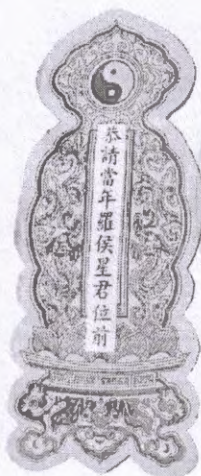 恭請當年羅侯星君位前